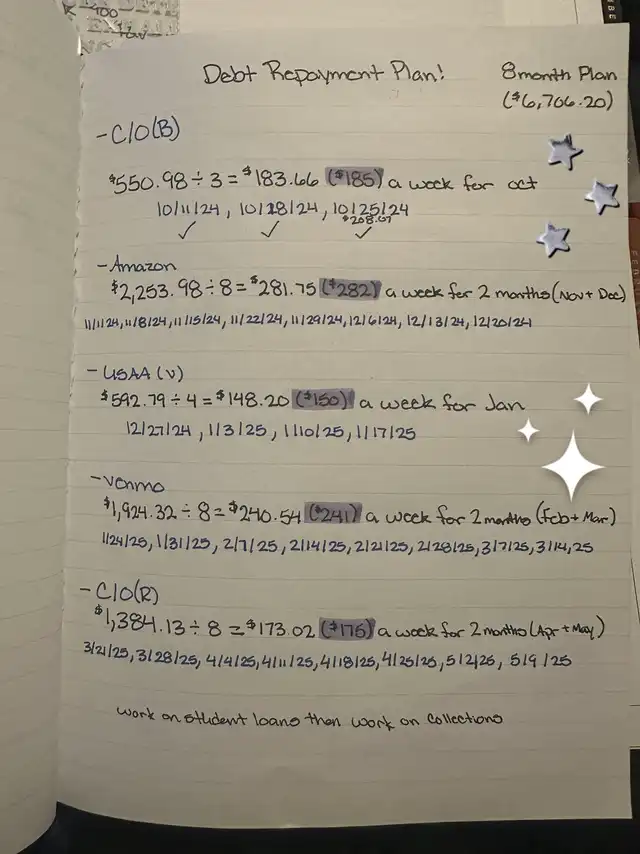 Debt Repayment Plan!
8 month Plan
($6,706.20)
- C/O(B)
$550.98 ÷ 3 = $183.66 ($185) a week for oct
10/11/24, 10/18/24, 10/25/24
$208.07
- Amazon
$2,253.98 ÷ 8 = $281.75 ($282) a week for 2 months (Nov + Dec)
11/1/24, 11/8/24, 11/15/24, 11/22/24, 11/29/24, 12/6/24, 12/13/24, 12/20/24
- USAA (V)
$592.79 ÷ 4 = $148.20 ($150) a week for Jan
12/27/24, 1/3/25, 1/10/25, 1/17/25
- Venmo
$1,924.32 ÷ 8 = $240.54 ($241) a week for 2 months (Feb + Mar)
1/24/25, 1/31/25, 2/7/25, 2/14/25, 2/21/25, 2/28/25, 3/7/25, 3/14,25
- C/O(R)
$1,384.13 ÷ 8 = $173.02 ($175) a week for 2 months (Apr + May)
3/21/25, 3/28/25, 4/4/25, 4/11/25, 4/18/25, 4/25/25, 5/2/25, 5/9/25
work on student loans then work on collections